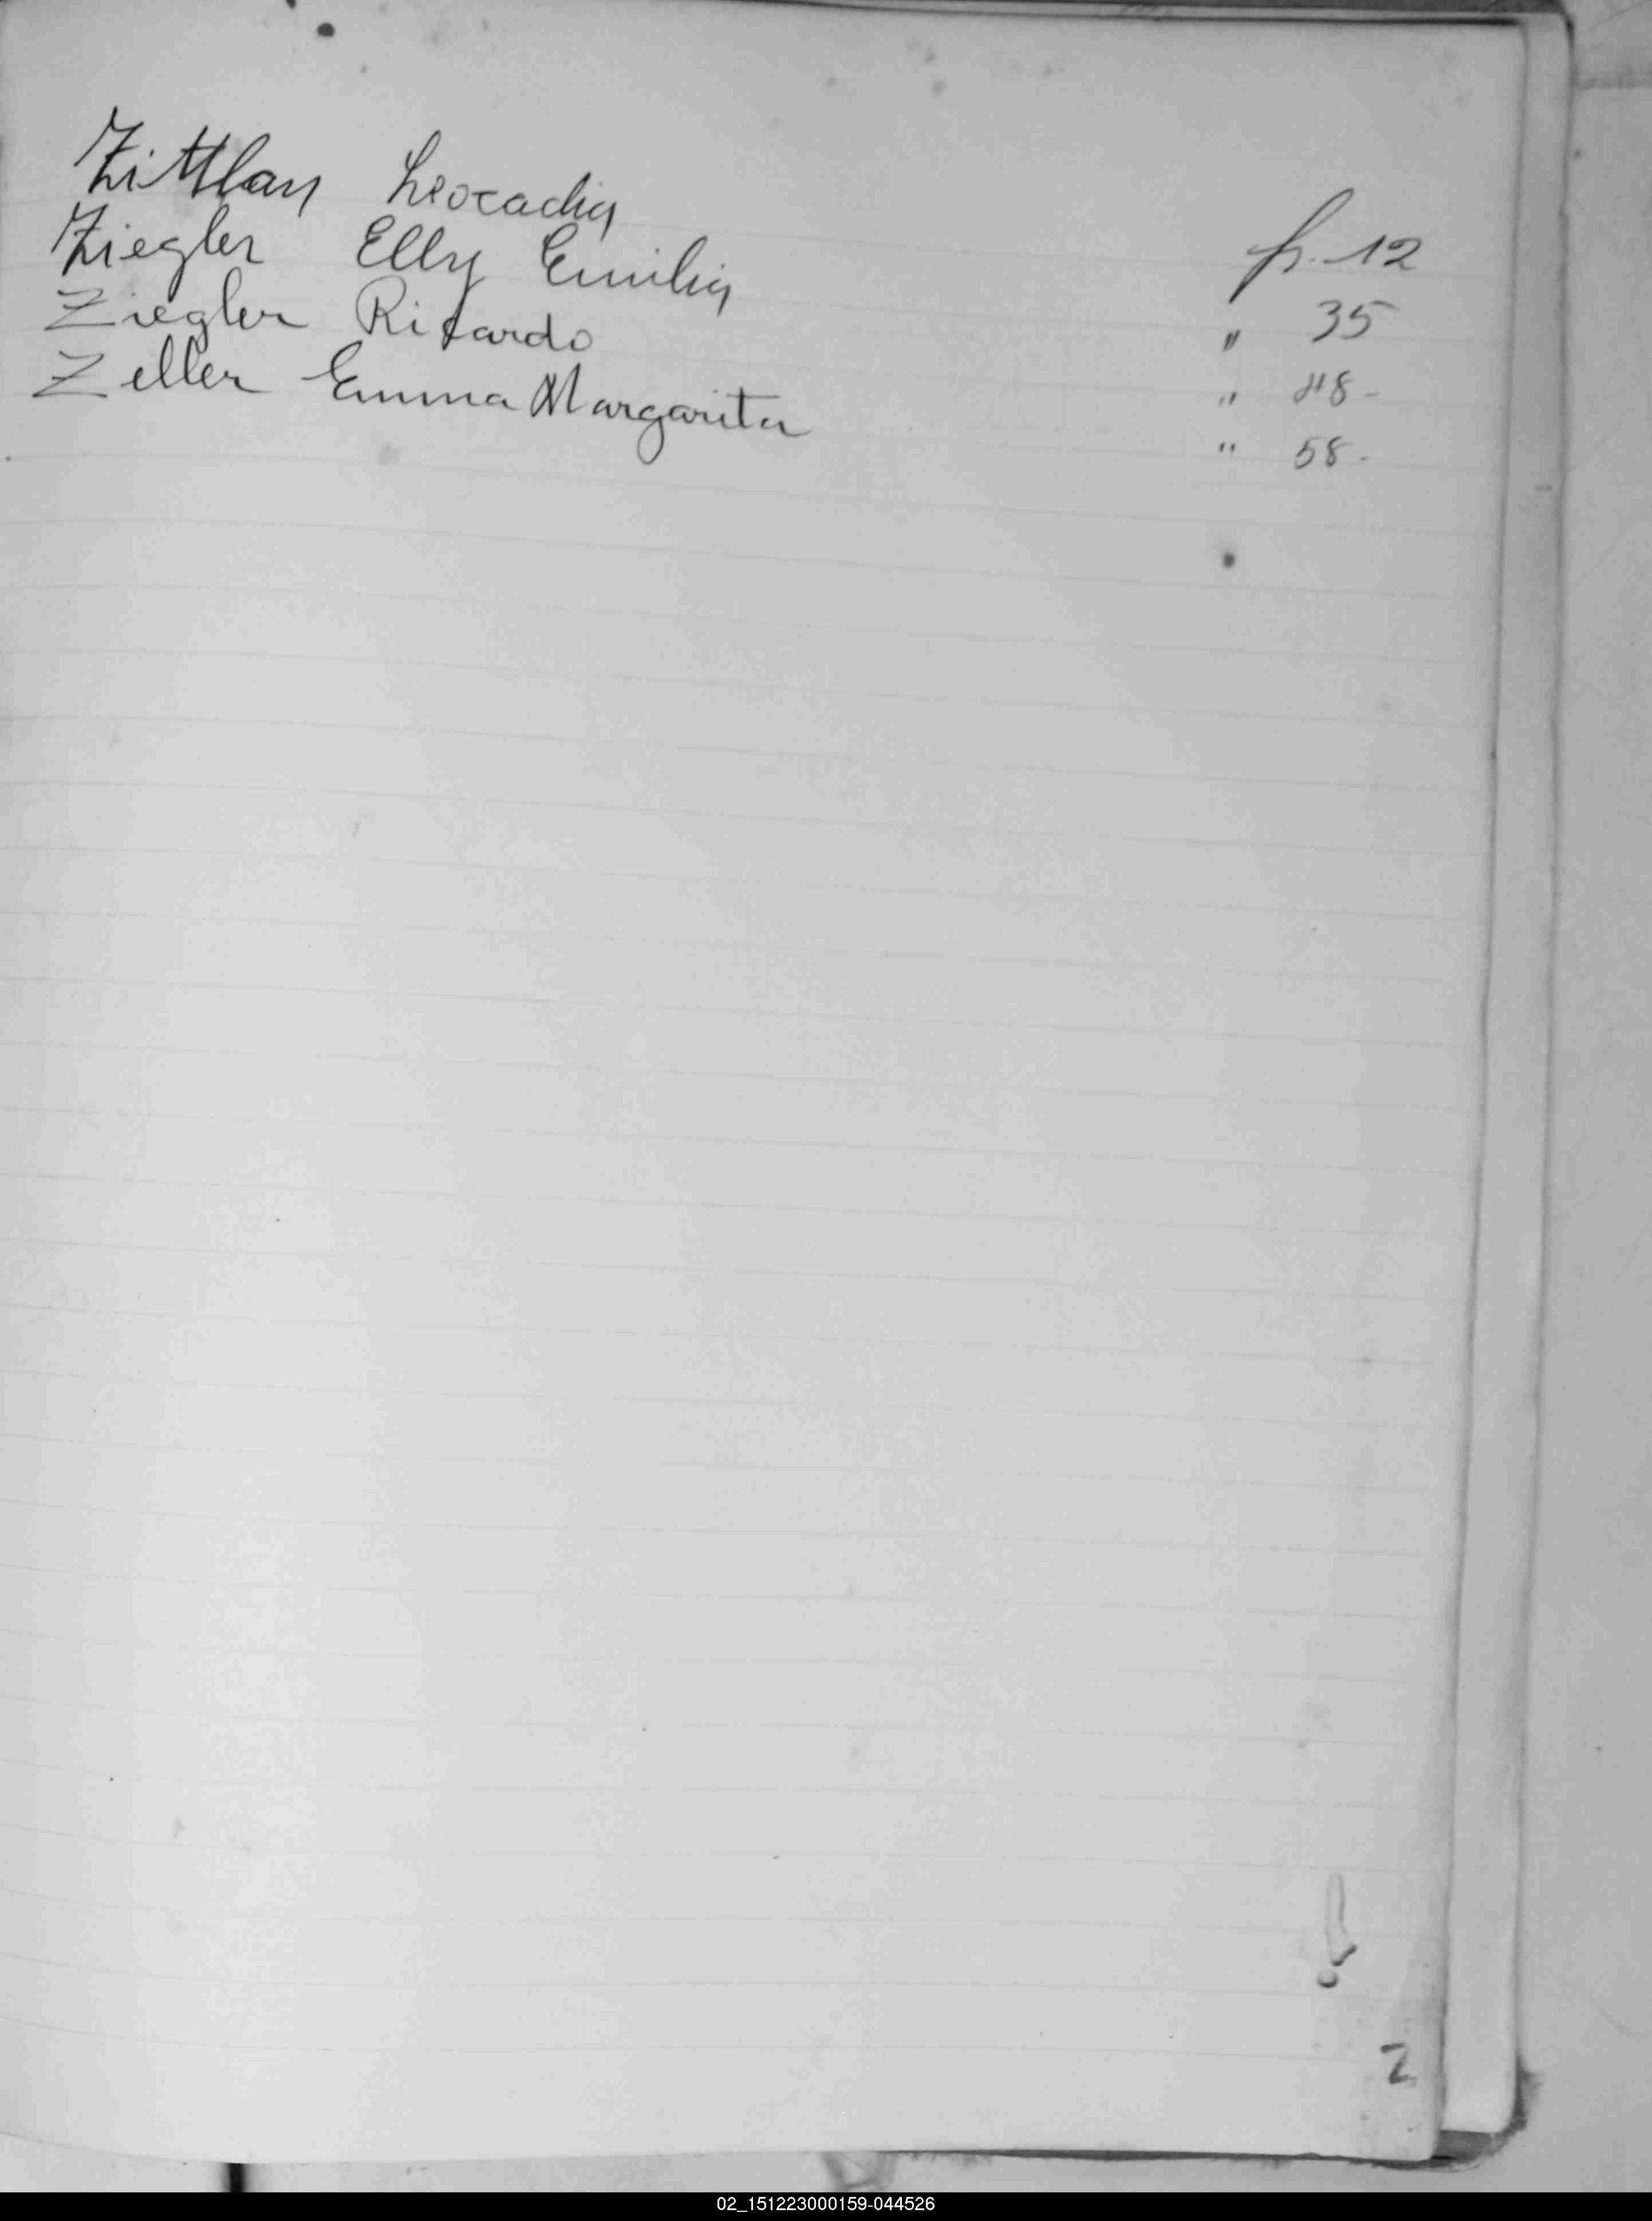 Zittlau Leocadia fs. 12
Ziegler Elly Emilia " 35
Ziegler Ricardo " 48-
Zeller Emma Margarita " 58.
Z
02_151223000159-044526